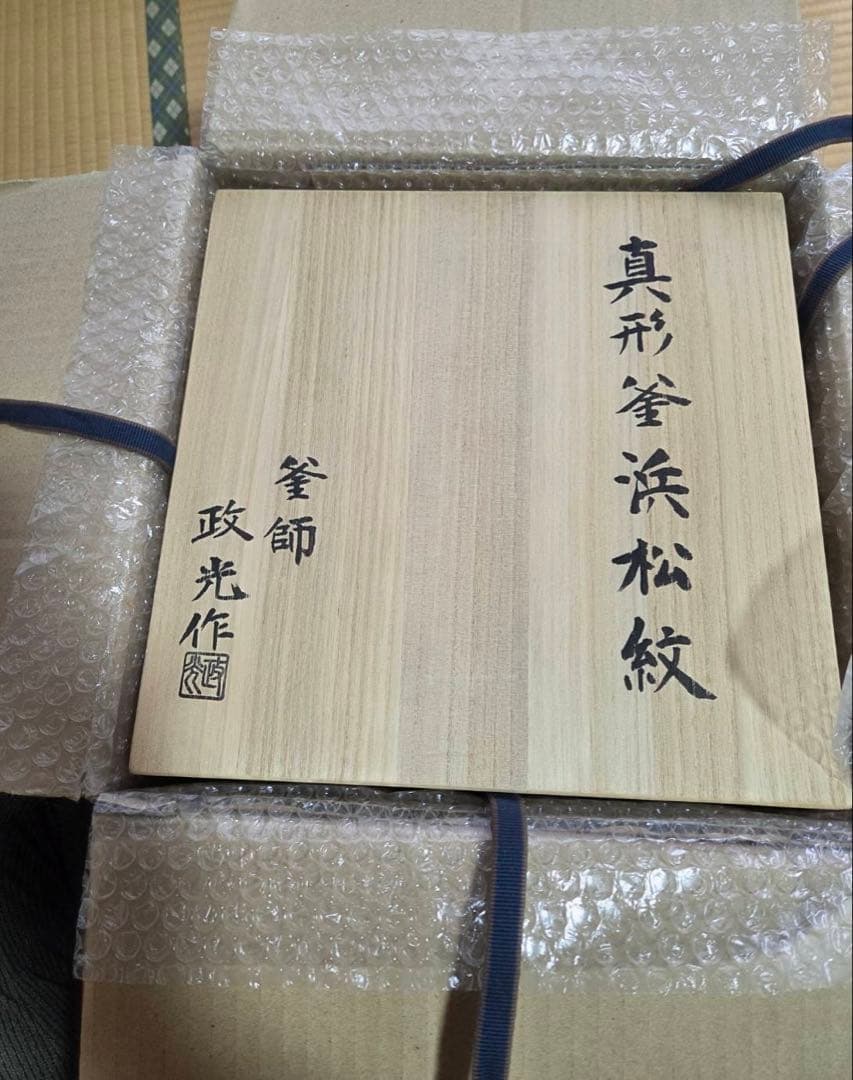 真形釜浜松紋
釜師
政光作
政光